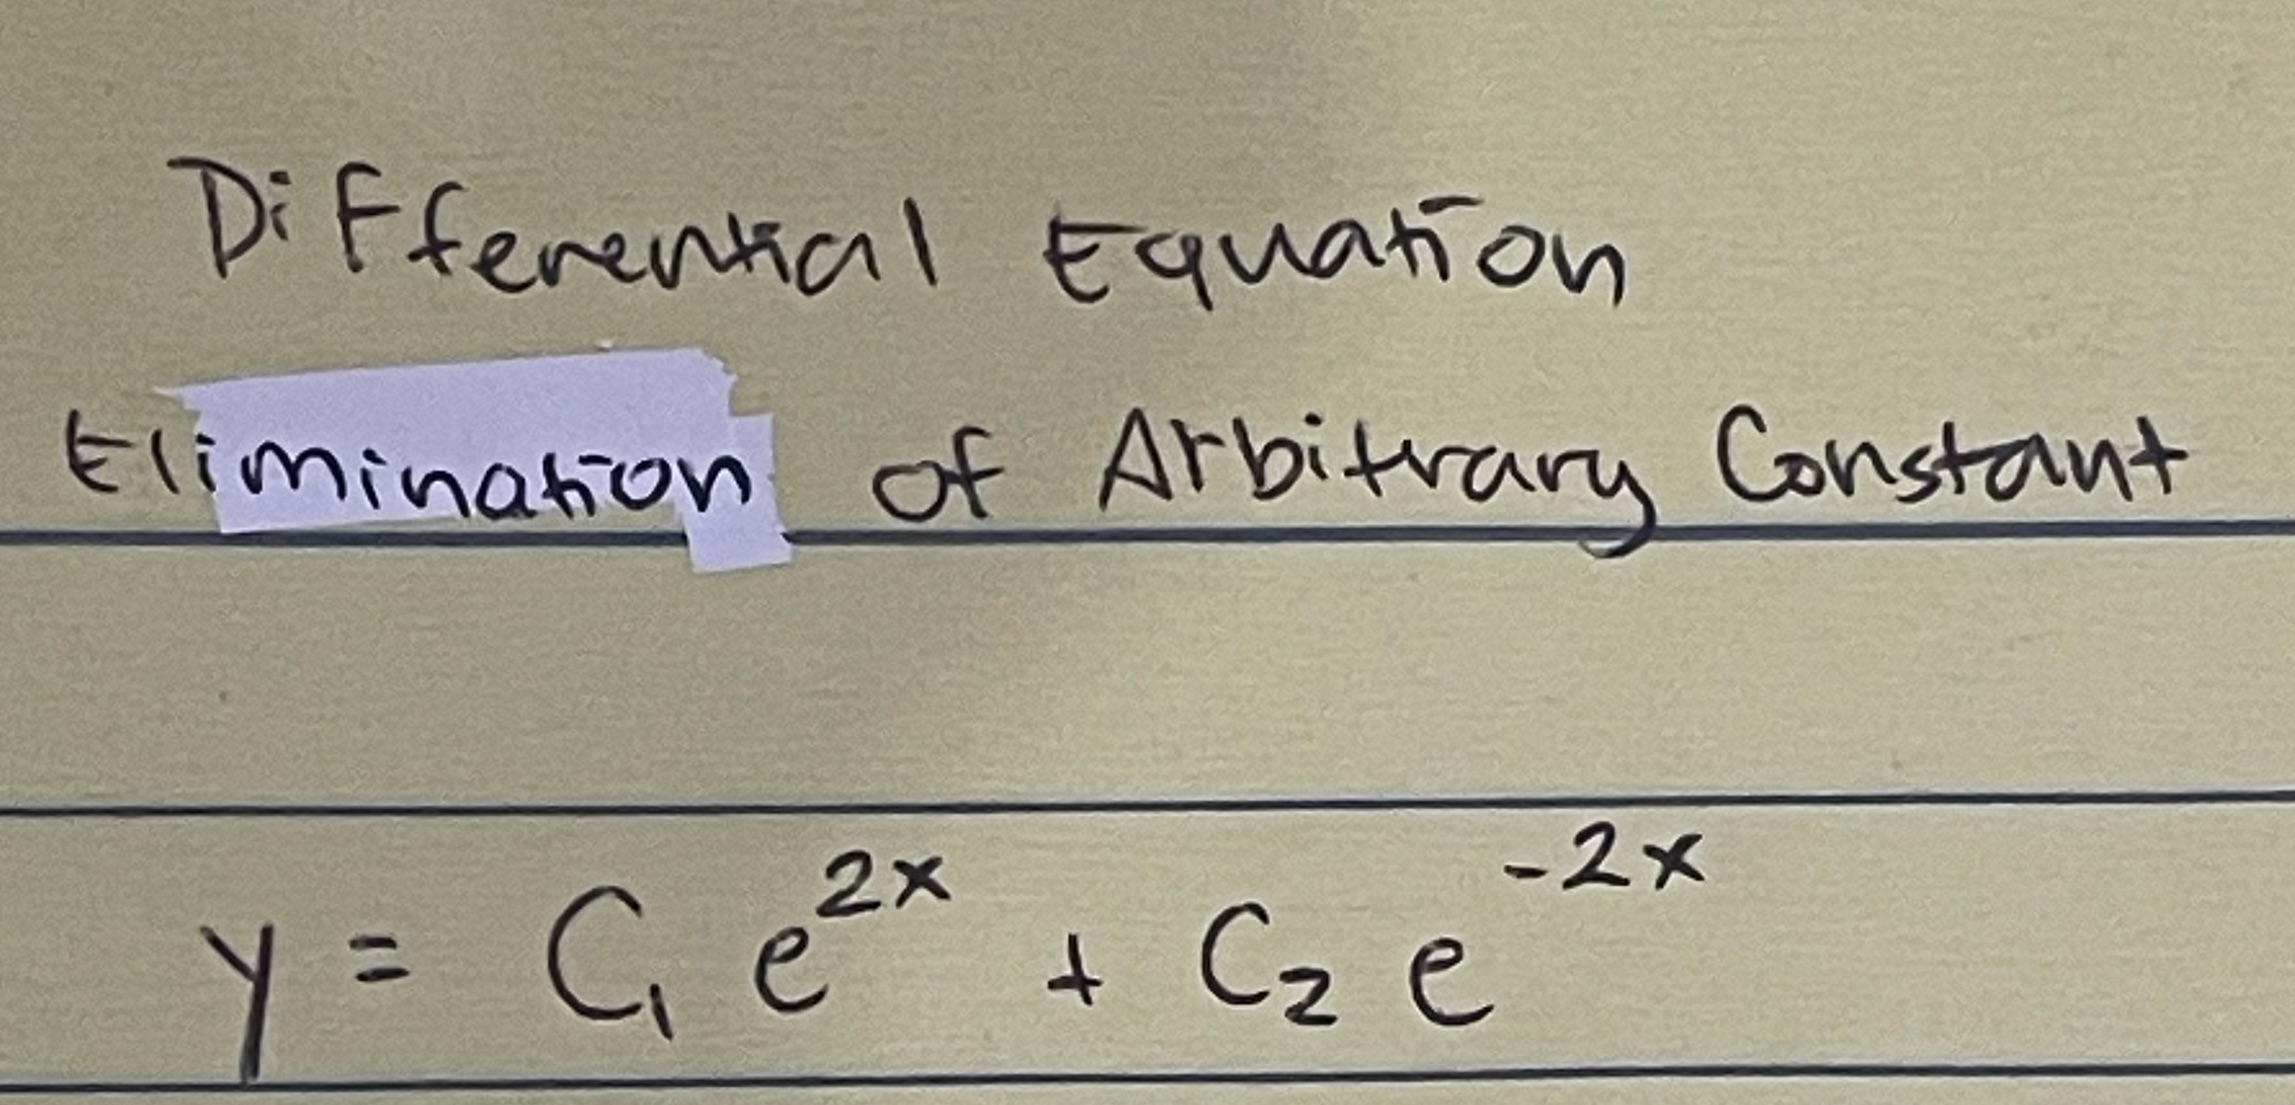 Differential Equation
Elimination of Arbitrary Constant
y = C₁ e²ˣ + C₂ e⁻²ˣ